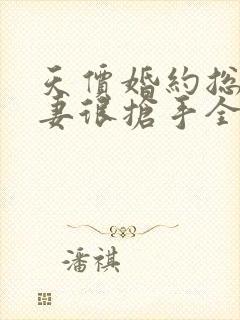 天價婚約总
妻很搶手全
潘祺